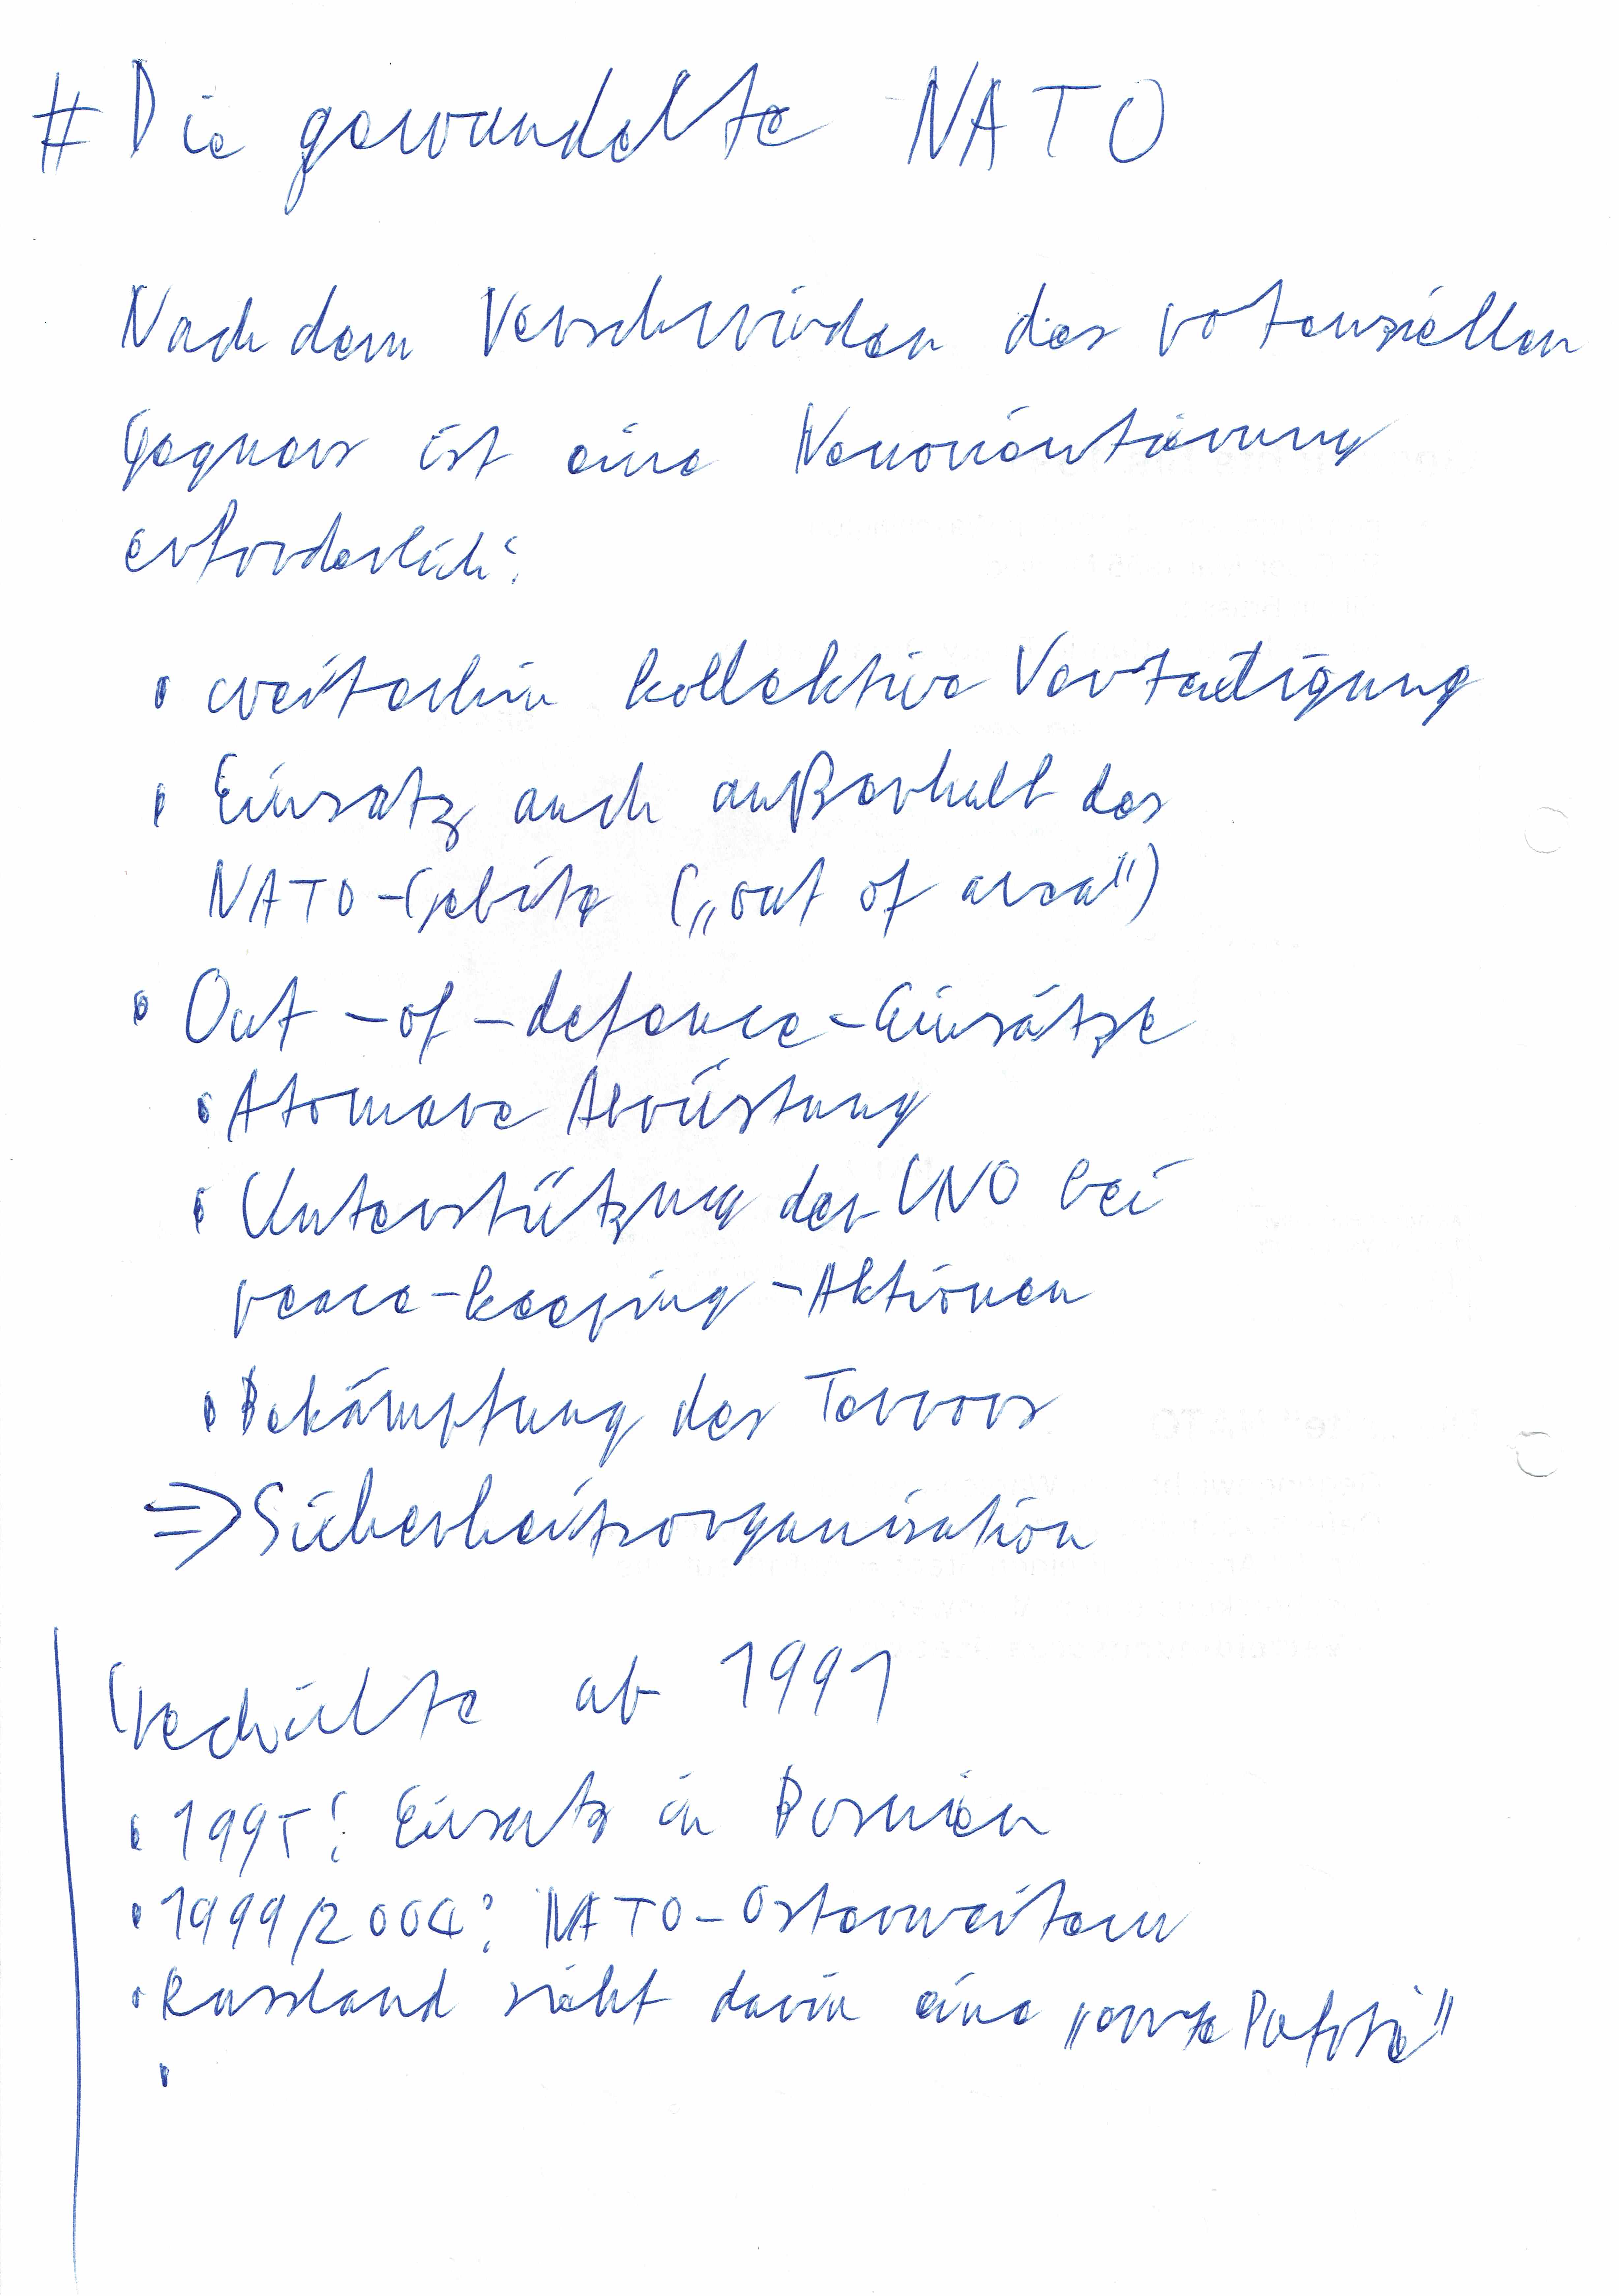 # Die gewandelte NATO
Nach dem Verschwinden des potenziellen
Gegners ist eine Neuorientierung
erforderlich:
• weiterhin kollektive Verteidigung
• Einsatz auch außerhalb des
NATO-Gebiets („out of area")
• Out-of-defence-Einsätze
• Atomare Abrüstung
• Unterstützung der UNO bei
peace-keeping-Aktionen
• Bekämpfung des Terrors
⇒ Sicherheitsorganisation
Geschichte ab 1991
• 1995: Einsatz in Bosnien
• 1999/2004: NATO-Osterweiterun
• Russland sieht darin eine
•